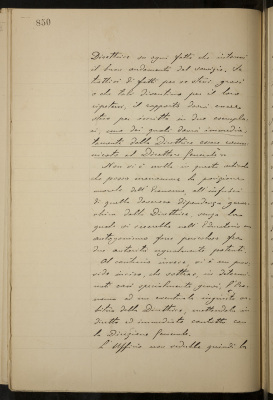 850
Direttrice su ogni fatto che interessi
il buon andamento del servizio. Se
trattasi di fatti per se stessi gravi
o che tali diventino per il loro
ripetersi, il rapporto dovrà essere
steso per iscritto in due esemplari,
uno dei quali dovrà immediatamente
dalla Direttrice esser comunicato
al Direttore Generale.
Non vi è nulla in questo articolo
che possa menomare la posizione
morale dell' Economa, all' infuori
di quella doverosa dipendenza
dalla Direttrice, senza la
quale si verrebbe nell' Educatorio
antagonismo fra
due autorità egualmente potenti.
Al contrario invece, vi è un
inciso, che sottrae, in determinati
casi specialmente gravi, l' Economa
ad un eventuale ingiusto arbitrio
della Direttrice, mettendola in
diretto ed immediato contatto con
la Direzione Generale.
L' Ufficio non vedrebbe quindi la